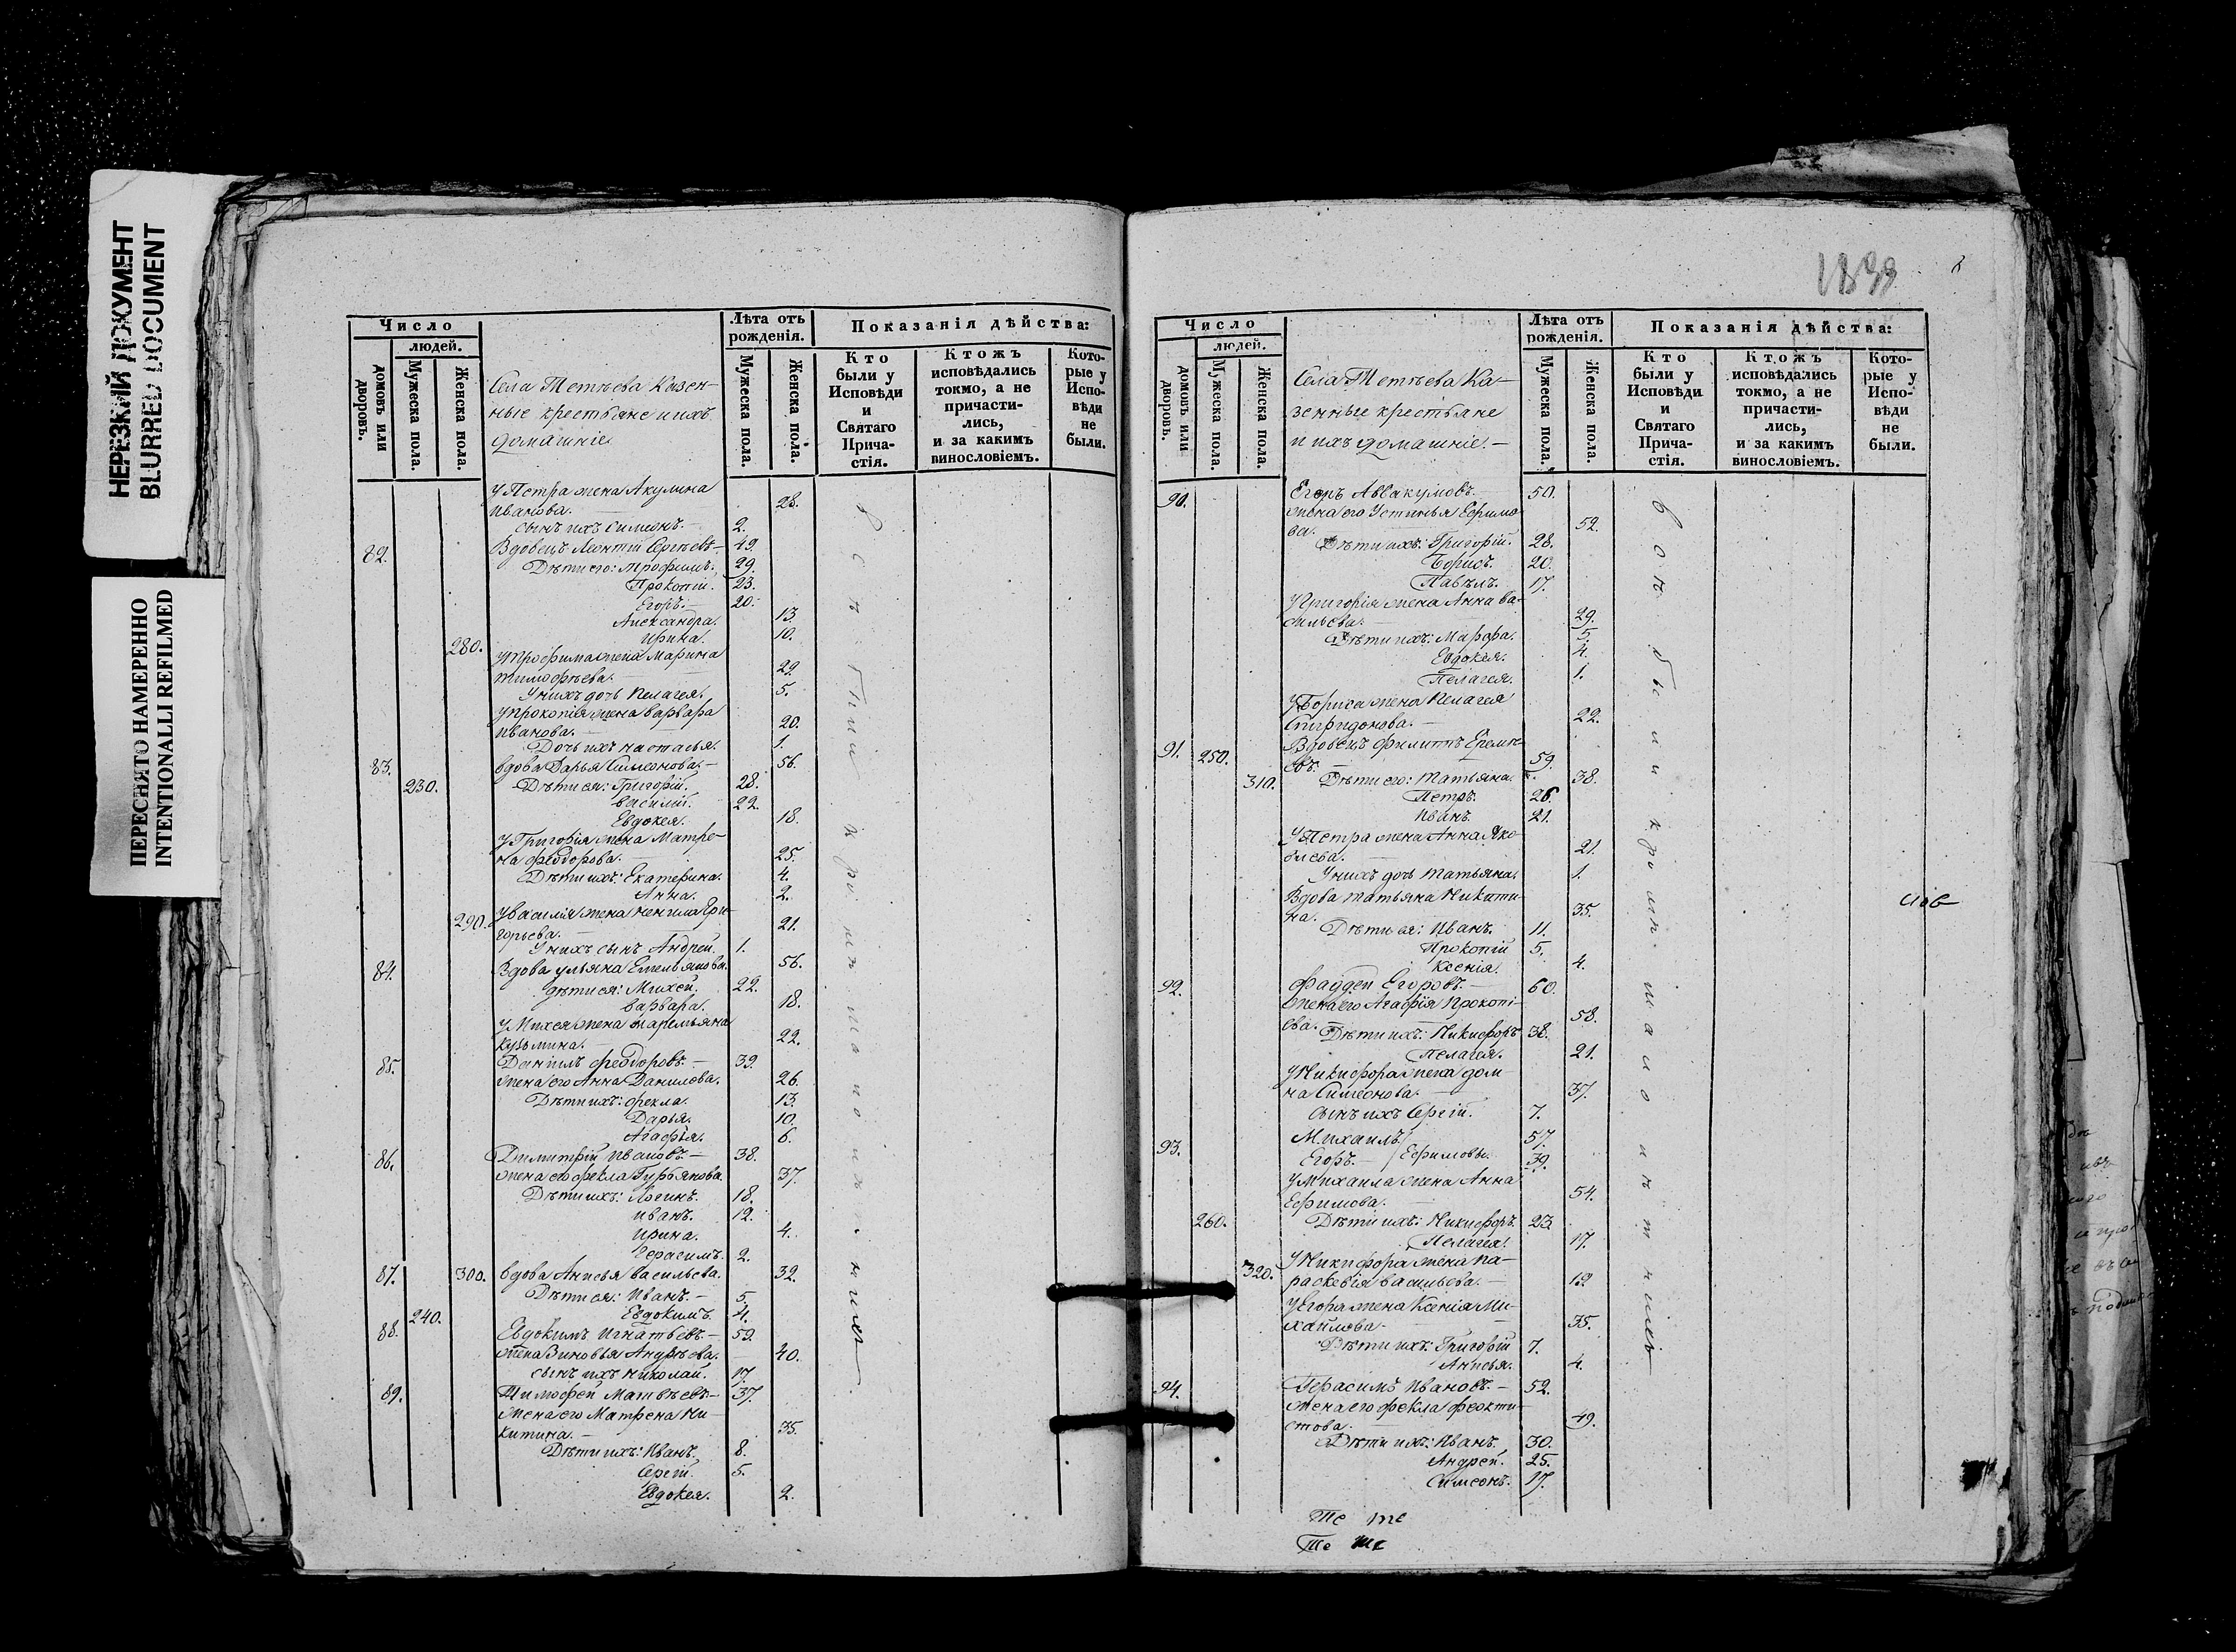 НЕРЕЗКИЙ ДОКУМЕНТ
BLURRED DOCUMENT
ПЕРЕСНЯТО НАМЕРЕННО
INTENTIONALLI REFILMED
Число
людей.
домовъ или дворовъ.
Мужеска пола.
Женска пола.
Села Тетѣева Казен-
ные крестьяне и ихъ
домашніе
Лѣта отъ
рожденія.
Мужеска пола.
Женска пола.
Показанія дѣйства:
Кто
были у
Исповѣди
и
Святаго
Прича-
стія.
Ктожъ
исповѣдались
токмо, а не
причасти-
лись,
и за какимъ
винословіемъ.
Кото-
рые у
Испо-
вѣди
не
были.
У Петра жена Акулина
Иванова. 28.
сынъ ихъ Симеонъ. 2.
82. Вдовецъ Леонтій Сергѣевъ 49.
Дѣти его: Трофимъ. 29.
Прокопій. 23.
Егоръ. 20.
Александра. 13.
280. Ирина. 10.
У Трофима жена Марина
Тимофѣева. 29.
У нихъ дочь Пелагея. 5.
У Прокопія жена Варвара
Иванова. 20.
Дочь ихъ Настасья. 1.
83. вдова Дарья Симеонова 56.
230. Дѣти ея: Григорій. 28.
Василій. 22.
Евдокея. 18.
У Григорія жена Матре-
на Феодорова. 25.
Дѣти ихъ: Екатерина. 4.
Анна. 2.
290. У Василія жена Ненила Гри-
горьева. 21.
У нихъ сынъ Андрей. 1.
84. Вдова Ульяна Емельянова. 56.
дѣти ея: Михей. 22.
Варвара. 18.
У Михея жена Маремьяна
Кузьмина. 22.
85. Даніилъ Феодоровъ. 39.
жена его Анна Данилова. 26.
Дѣти ихъ: Фекла. 13.
Дарья. 10.
Агафья. 6.
86. Димитрій Ивановъ 38.
жена его Фекла Гурьянова. 37.
Дѣти ихъ: Логинъ. 18.
Иванъ. 12.
Ирина. 4.
Герасимъ. 2.
87. 300. вдова Анисья Васильева. 32.
Дѣти ея: Иванъ. 5.
240. Евдокимъ. 4.
88. Евдокимъ Игнатьевъ. 59.
жена Зиновья Андрѣева. 40.
сынъ ихъ Николай. 17.
89. Тимофей Матвѣевъ. 37.
жена его Матрена Ни-
китина. 35.
Дѣти ихъ: Иванъ. 8.
Сергій. 5.
Евдокея. 2.
1838
Число
людей.
домовъ или дворовъ.
Мужеска пола.
Женска пола.
Села Тетѣева Ка-
зенные крестьяне
и ихъ домашніе.
Лѣта отъ
рожденія.
Мужеска пола.
Женска пола.
Показанія дѣйства:
Кто
были у
Исповѣди
и
Святаго
Прича-
стія.
Ктожъ
исповѣдались
токмо, а не
причасти-
лись,
и за какимъ
винословіемъ.
Кото-
рые у
Испо-
вѣди
не
были.
90. Егоръ Аввакумовъ. 50.
жена его Устинья Ефимо-
ва. 52.
Дѣти ихъ: Григорій. 28.
Борисъ. 20.
Павелъ. 17.
У Григорія жена Анна Ва-
сильева. 29.
Дѣти ихъ: Марфа. 5.
Евдокея. 4.
Пелагея. 1.
У Бориса жена Пелагея
Спиридонова. 22.
91. 250. Вдовецъ Филиппъ Еремѣ-
евъ. 59.
310. Дѣти его: Татьяна. 38.
Петръ. 26.
Иванъ. 21.
У Петра жена Анна Яко-
влева. 21.
У нихъ дочь Татьяна. 1.
Вдова Татьяна Никити-
на. 35.
Дѣти ея: Иванъ. 11.
Прокопій 5.
Ксенія. 4.
92. Фаддей Егоровъ. 60.
жена его Агафія Прокопі-
ева. 58.
Дѣти ихъ: Никифоръ 38.
Пелагея. 21.
У Никифора жена Дом-
на Симеонова. 37.
сынъ ихъ Сергій. 7.
Михаилъ 57.
93. Егоръ. Ефимовы. 39.
У Михаила жена Анна
Ефимова. 54.
260. Дѣти ихъ: Никифоръ. 23
Пелагея. 17.
320. У Никифора жена Па-
раскевія Васильева. 19.
У Егора жена Ксенія Ми-
хайлова. 35.
Дѣти ихъ: Григорій 7.
Анисья. 4.
94. Герасимъ Ивановъ. 52.
жена его Фекла Феокти-
стова. 49.
Дѣти ихъ: Иванъ. 30.
Андрей. 25.
Симеонъ. 17.